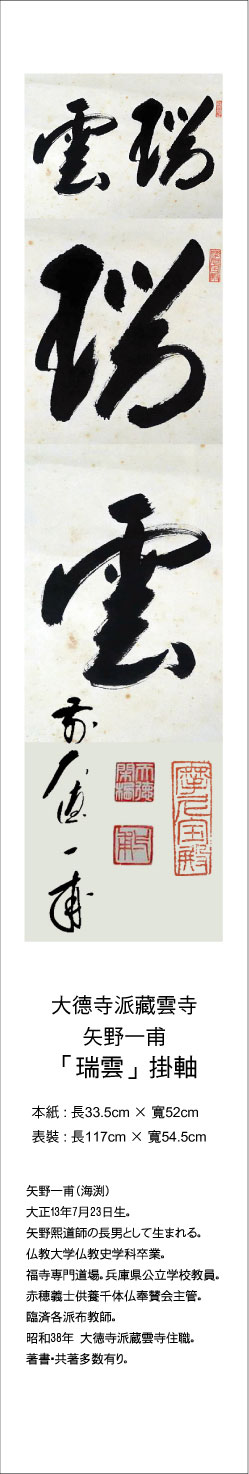 瑞雲
瑞
雲
前大德一甫
大德寺派藏雲寺
矢野一甫
「瑞雲」掛軸
本紙：長33.5cm × 寬52cm
表裝：長117cm × 寬54.5cm
矢野一甫（海渕）
大正13年7月23日生。
矢野熙道師の長男として生まれる。
仏教大学仏教史学科卒業。
福寺専門道場。兵庫県公立学校教員。
赤穂義士供養千体仏奉賛会主管。
臨済各派布教師。
昭和38年 大德寺派蔵雲寺住職。
著書・共著多数有り。